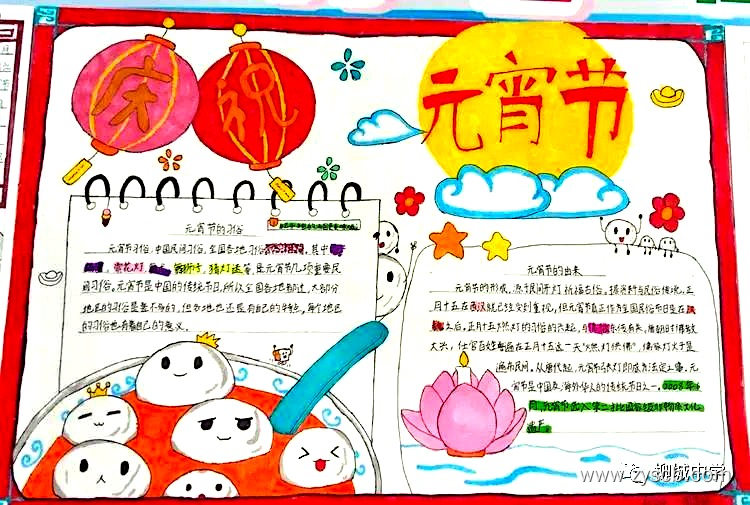 庆祝
元宵节
元宵节的习俗
元宵节习俗,中国民间习俗,全国各地习俗 其中
赏花灯 舞狮子,猜灯谜等,是元宵节几项重要民
间习俗,元宵节是中国的传统节日,所以全国各地都过,大部分
地区的习俗是差不多的,但各地也还是有自己的特点,每个地区
的习俗也有着自己的意义。
元宵节的由来
元宵节的形成,源于民间开灯祈福古俗,据资料与民俗传说,正
月十五在西汉就已经受到重视,但元宵节真正作为全国民俗节日是在汉
魏之后,正月十五燃灯的习俗的兴起,与佛教东传有关,唐朝时佛教
大兴,仕官百姓普遍在正月十五这一天"燃灯供佛",佛家灯火于是
遍布民间,从唐代起,元宵节张灯即成为法定之事,元
宵节是中国及海外华人的传统节日之一,2008年6
月,元宵节 入第二批国家级非物质文化
遗产。
柳城中学